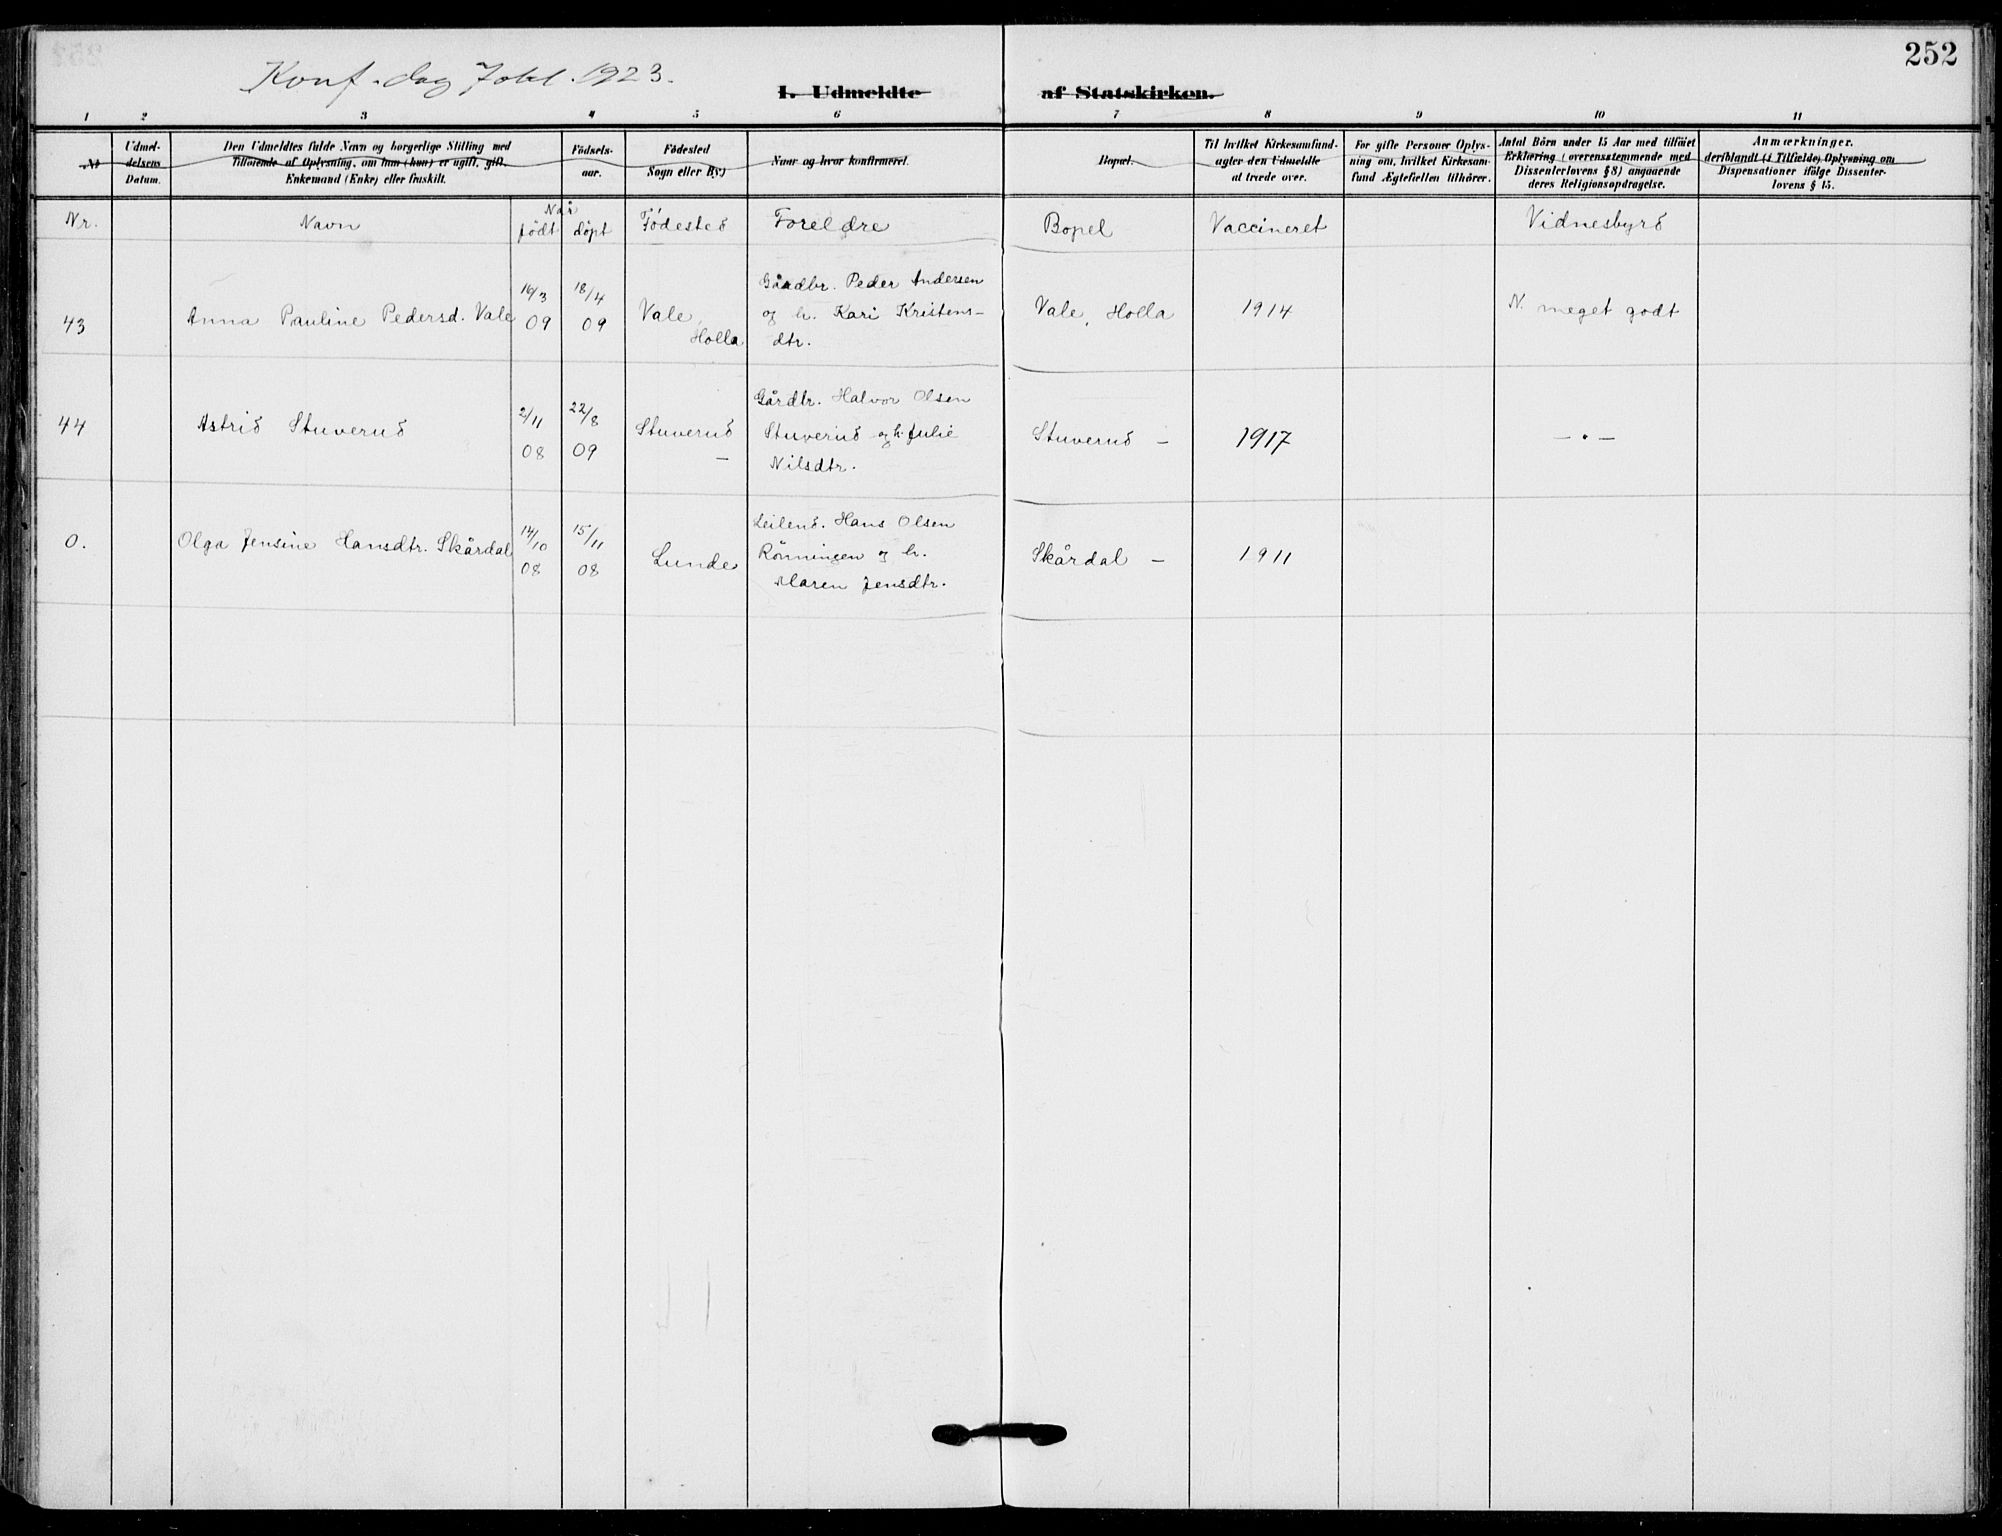 252
Konf. dag 7 okt. 1923.
I. Udmeldte af Statskirken.
1 2 3 4 5 6 7 8 9 10 11
№
Udmel-
delsens
Datum.
Den Udmeldtes fulde Navn og borgerlige Stilling med
Tilføiende af Oplysning, om han (hun) er ugift, gift,
Enkemand (Enke) eller fraskilt.
Fødsels-
aar.
Fødested
Sogn eller By.)
Naar og hvor konfirmeret.
Bopæl.
Til hvilket Kirkesamfund
agter den Udmeldte
at træde over.
For gifte Personer Oplys-
ning om, hvilket Kirkesam-
fund Ægtefællen tilhører.
Antal Börn under 15 Aar med tilföiet
Erklæring (overensstemmende med
Dissenterlovens § 8) angaaende
deres Religionsopdragelse.
Anmærkninger.
deriblandt (i Tilfælde) Oplysning om
Dispensationer ifölge Dissenter-
lovens § 15.
Nr.
Navn
Når
födt döpt
Födested
Foreldre
Bopel
Vaccineret
Vidnesbyrd
43
Anna Pauline Pedersd. Vale
16/3
09
18/4
09
Vale,
Holla
Gaardbr. Peder Andersen
og h. Kari Kristens-
dtr.
Vale, Holla
1914
N. meget godt
44
Astrid Stuverud
2/11
08
22/8
09
Stuverud
–
Gårdbr. Halvor Olsen
Stuverud og h. Julie
Nilsdtr.
Stuverud –
1917
– • –
0.
Olga Jensine Hansdtr. Skårdal
14/10
08
15/11
08
Lunde
Leilend. Hans Olsen
Rönningen og h.
Maren Jensdtr.
Skårdal –
1911